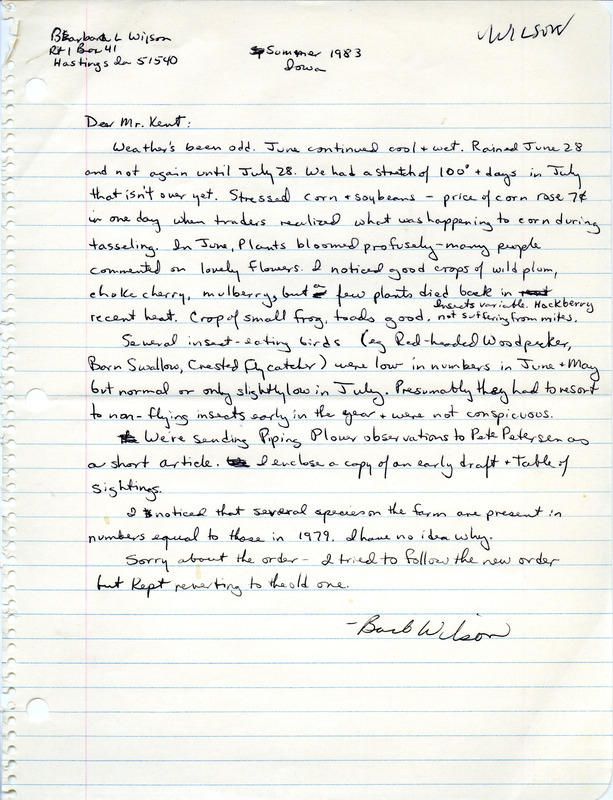 Barbara L Wilson
Rt 1 Box 41
Hastings Ia 51540
WILSON
Summer 1983
Iowa
Dear Mr. Kent:
Weather's been odd. June continued cool + wet. Rained June 28
and not again until July 28. We had a stretch of 100° + days in July
that isn't over yet. Stressed corn + soybeans - price of corn rose 7¢
in one day when traders realized what was happening to corn during
tasseling. In June, Plants bloomed profusely - many people
commented on lovely flowers. I noticed good crops of wild plum,
choke cherry, mulberry, but a few plants died back in
Insects variable. Hackberry
recent heat. Crop of small frog, toads good. not suffering from mites.
Several insect-eating birds (eg Red-headed Woodpecker,
Barn Swallow, Crested Flycatcher) were low in numbers in June + May
but normal or only slightly low in July. Presumably they had to resort
to non-flying insects early in the year + were not conspicuous.
We're sending Piping Plover observations to Pete Petersen as
a short article. I enclose a copy of an early draft + Table of
sightings.
I noticed that several species on the farm are present in
numbers equal to those in 1979. I have no idea why.
Sorry about the order - I tried to follow the new order
but kept reverting to the old one.
- Barb Wilson